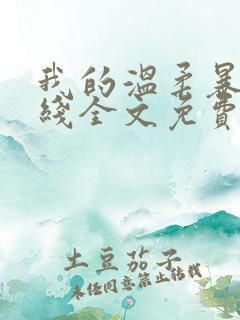 我的温柔暴
线全文免費
土豆茄子
未经同意禁止转载